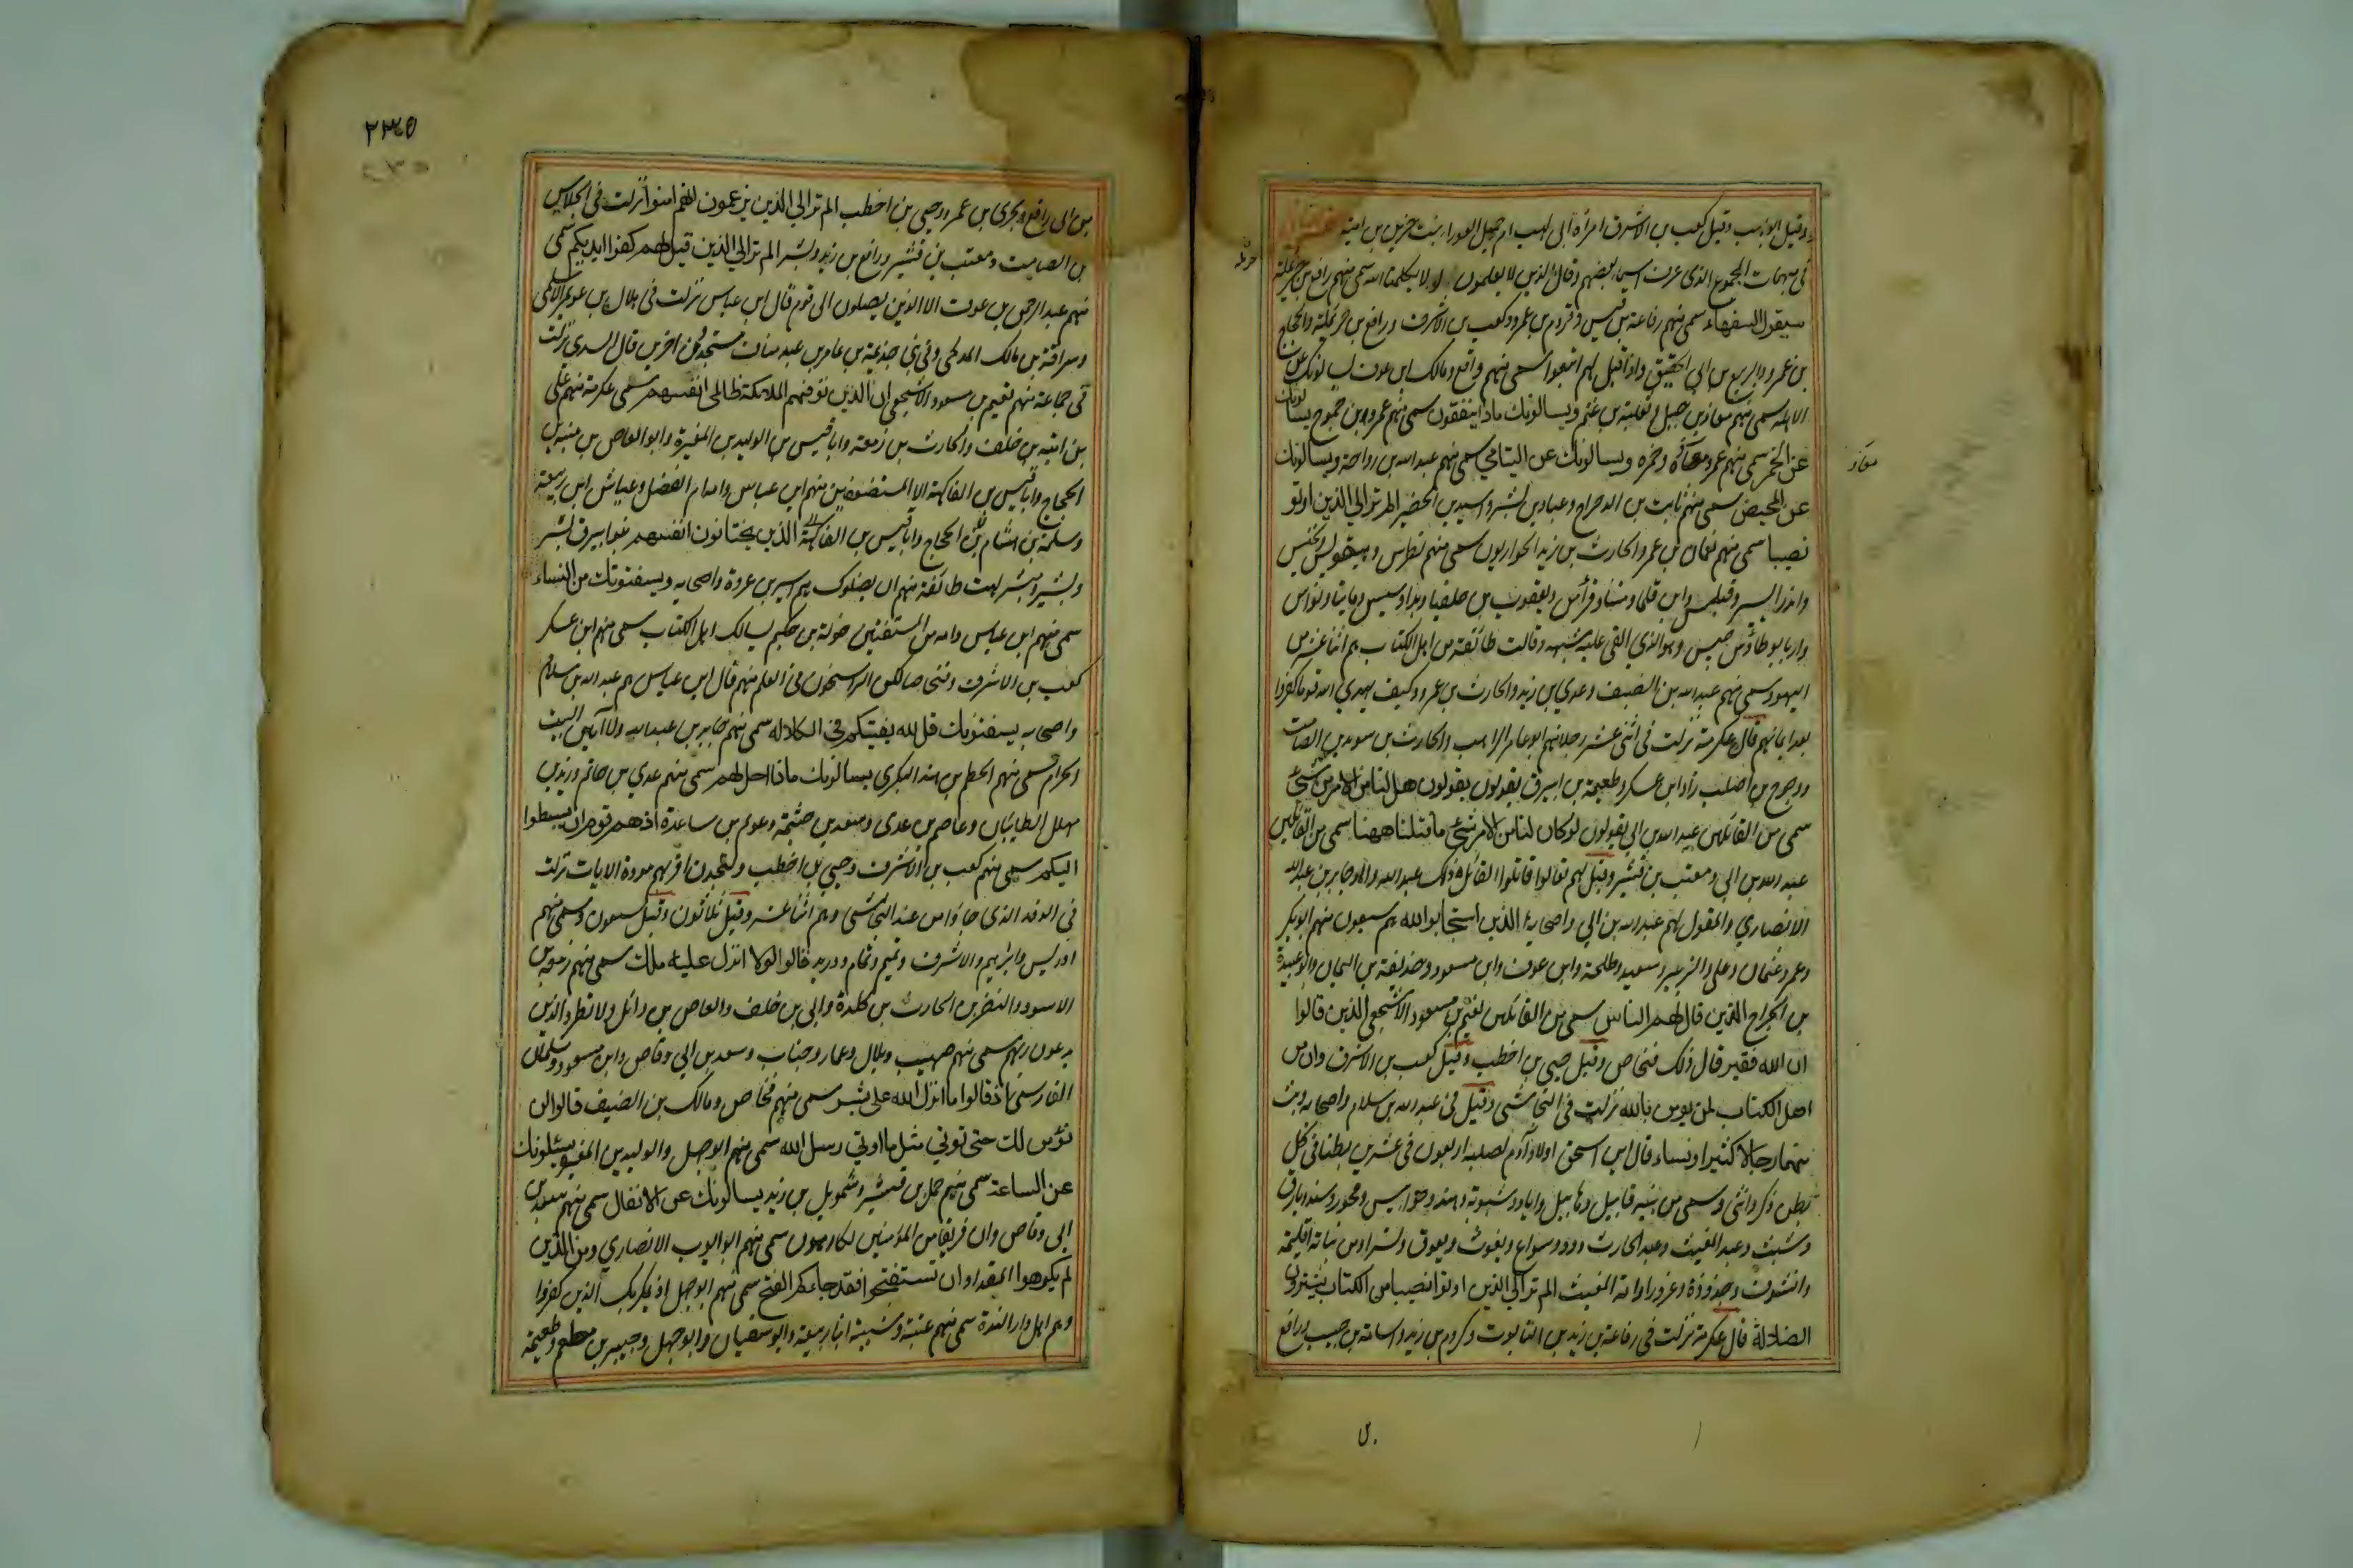 وقيل ابو لهب وقيل كعب بن الاشرف امرأة ابى لهب ام جميل العوراء بنت حرب بن امية
فى مبهمات الجموع الذى عرف اسماء بعضهم وقال الذين لا يعلمون لو لا يكلمنا الله سمى منهم رافع بن حريملة
سيقول السفهاء سمى منهم رفاعة بن قيس وقردم بن عمرو وكعب بن الاشرف ورافع بن حرملة والحجاج
بن عمرو والربيع بن ابي الحقيق واذا قيل لهم اتبعوا سمى منهم رافع ومالك ابن عوف يسالونك عن
الاهلة سمى منهم معاذ بن جبل وثعلبة بن غنم ويسالونك ماذا ينفقون سمى منهم عمرو بن جموح يسالونك
عن الخمر سمى منهم عمر ومعاذ وحمزه ويسالونك عن اليتامي سمى منهم عبد الله بن رواحة ويسالونك
عن المحيض سمى منهم ثابت بن الدحداح وعباد بن بشر واسيد بن الحضير الم تر الي الذين اوتو
نصيبا سمى منهم نعمان بن عمرو والحارث بن زيد الحواريون سمى منهم فطرس ويعقوبس يحنس
واندرا ليس وفيلبس وابن تلما ومنتا وقرأمس ويعقوب بن حلفيا وبداوسيس وقابيا ونواس
واريا بوطا وسرجيس وهو الذي القى عليه شبهه وقالت طائفة من اهل الكتاب هم اثنا عشر من
اليهود سمى منهم عبد الله بن الضيف وعدي بن زيد والحارث بن عمرو وكيف يهدي الله قوما كفروا
بعد ايمانهم قال عكرمة نزلت فى اثنى عشر رجلا منهم ابو عامر الراهب والحارث بن سويد بن الصامت
ووحوح بن اصلب زاد ابن عسكر وطعيمة بن ابيرق يقولون يقولون هل لنا من الامر من شئ
سمى من القائلين عبد الله بن ابي يقولون لو كان لنا من الامر شئ ما قتلنا ههنا سمى من القائلين
عبد الله بن ابي ومعتب بن قشير وقيل لهم تعالوا قاتلوا القائل ذلك عبد الله والد جابر بن عبد الله
الانصاري والمقول لهم عبد الله بن ابي واصحابه الذين استجابوا لله هم سبعون منهم ابو بكر
وعمر وعثمان وعلى والزبير وسعيد وطلحة وابن عوف وابن مسعود وحذيفة بن اليمان وابو عبيدة
بن الجراح الذين قال لهم الناس سمى من القائلين نعيم بن مسعود الاشجعي الذين قالوا
ان الله فقير قال ذلك فنحاص وقيل حيي بن اخطب وقيل كعب بن الاشرف وان من
اهل الكتاب لمن يومن بالله نزلت فى النجاشى وقيل فى عبد الله بن سلام واصحابه وبث
منهما رجالا كثيرا ونساء قال ابن اسحق اولاد آدم لصلبه اربعون فى عشرين بطنا فى كل
بطن ذكر وانثى وسمى من بنيه قابيل وهابيل واياد وشبوبة وهند وحرابيس ومحور وسند وبارق
وشيث وعبد المغيث وعبد الحارث وود وسواع ويغوث ويعوق ونسرا ومن بناته اقليمة
واشوف وجزوزة وعزورا وامة المغيث الم تر الي الذين اوتوا نصيبا من الكتاب يشترون
الضلالة قال عكرمة نزلت فى رفاعة بن زيد بن التابوت وكردم بن زيد واسامة بن حبيب ورافع
معاذ
حرملة
٢٣٥
بن ابى رافع وبحرى بن عمرو وحيي بن اخطب الم تر الي الذين يزعمون انهم امنوا نزلت فى الجلاس
بن الصامت ومعتب بن قشير ورافع بن زيد وبشر الم تر الي الذين قيل لهم كفوا ايديكم سمى
منهم عبد الرحمن بن عوف الا الذين يصلون الى قوم قال ابن عباس نزلت فى هلال بن عويمر الاسلمى
وسراقة بن مالك المدلجى وفي بني جذيمة بن عامر بن عبد مناف ستجدون اخرين قال السدى نزلت
فى جماعة منهم نعيم بن مسعود الاشجعى ان الذين توفيهم الملائكة ظالمى انفسهم سمى عكرمة منهم على
بن امية بن خلف والحارث بن زمعه وابا قيس بن الوليد بن المغيرة وابو العاص بن منبه بن
الحجاج وابا قيس بن الفاكهة الا المستضعفين منهم ابن عباس وامه ام الفضل وعياش ابن ربيعة
وسلمة بن هشام بن الحجاج وابا قيس بن الفاكهة الذين يختانون انفسهم بنو ابيرق بشر
وبشير ومبشر لهمت طائفة منهم ان يضلوك هم اسير بن عروة واصحابه ويستفتونك من النساء
سمى منهم ابن عباس وامه من المستفتين خولة بن حكيم يسالك اهل الكتاب سمى منهم ابن عسكر
كعب بن الاشرف وفنحاصا لكن الراسخون فى العلم منهم قال ابن عباس هم عبد الله بن سلام
واصحابه يستفتونك قل الله يفتيكم فى الكلالة سمى منهم جابر بن عبد الله ولا آمين البيت
الحرام سمى منهم الحطم بن هند البكرى يسالونك ماذا احل لهم سمى منهم عدي بن حاتم وزيد بن
مهلهل الطائيان وعاصم بن عدى وسعد بن خثيمة وعويم بن ساعدة اذ هم قوم ان يبسطوا
اليكم سمى منهم كعب بن الاشرف وحيي بن اخطب ولتجدن اقربهم مودة الايات نزلت
فى الوفد الذى جاؤا من عند النجاشى وهم اثنا عشر وقيل ثلاثون وقيل سبعون وسمى منهم
ادريس وابراهيم والاشرف وتميم وتمام ودريد قالوا لولا انزل عليه ملك سمى منهم زمعه بن
الاسود والنضر بن الحارث بن كلدة وابي بن خلف والعاص بن وائل ولا تطرد الذين
يدعون ربهم سمى منهم صهيب وبلال وعمار وخباب وسعد بن ابي وقاص وابن مسعود وسلمان
الفارسى اذ قالوا ما انزل الله على بشر سمى منهم فنحاص ومالك بن الضيف قالوا لن
نؤمن لك حتى نوتي مثل ما اوتي رسل الله سمى منهم ابو جهل والوليد بن المغيرة يسئلونك
عن الساعة سمى منهم حمل بن قشير وشمويل بن زيد يسالونك عن الانفال سمى منهم سعد بن
ابى وقاص وان فريقا من المؤمنين لكارهون سمى منهم ابو ايوب الانصاري ومن الذين
لم يكرهوا المقداد ان تستفتحوا فقد جاءكم الفتح سمى منهم ابو جهل اذ يمكر بك الذين كفروا
وهم اهل دار الندوة سمى منهم عتبة وشيبة ابنا ربيعة وابو سفيان وابو جهل وجبير بن مطعم وطعيمة